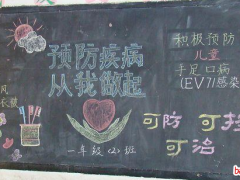 预防疾病
从我做起
一年级(2)班
积极预防
儿童
手足口病
(EV71感染
可防 可控
可治
风